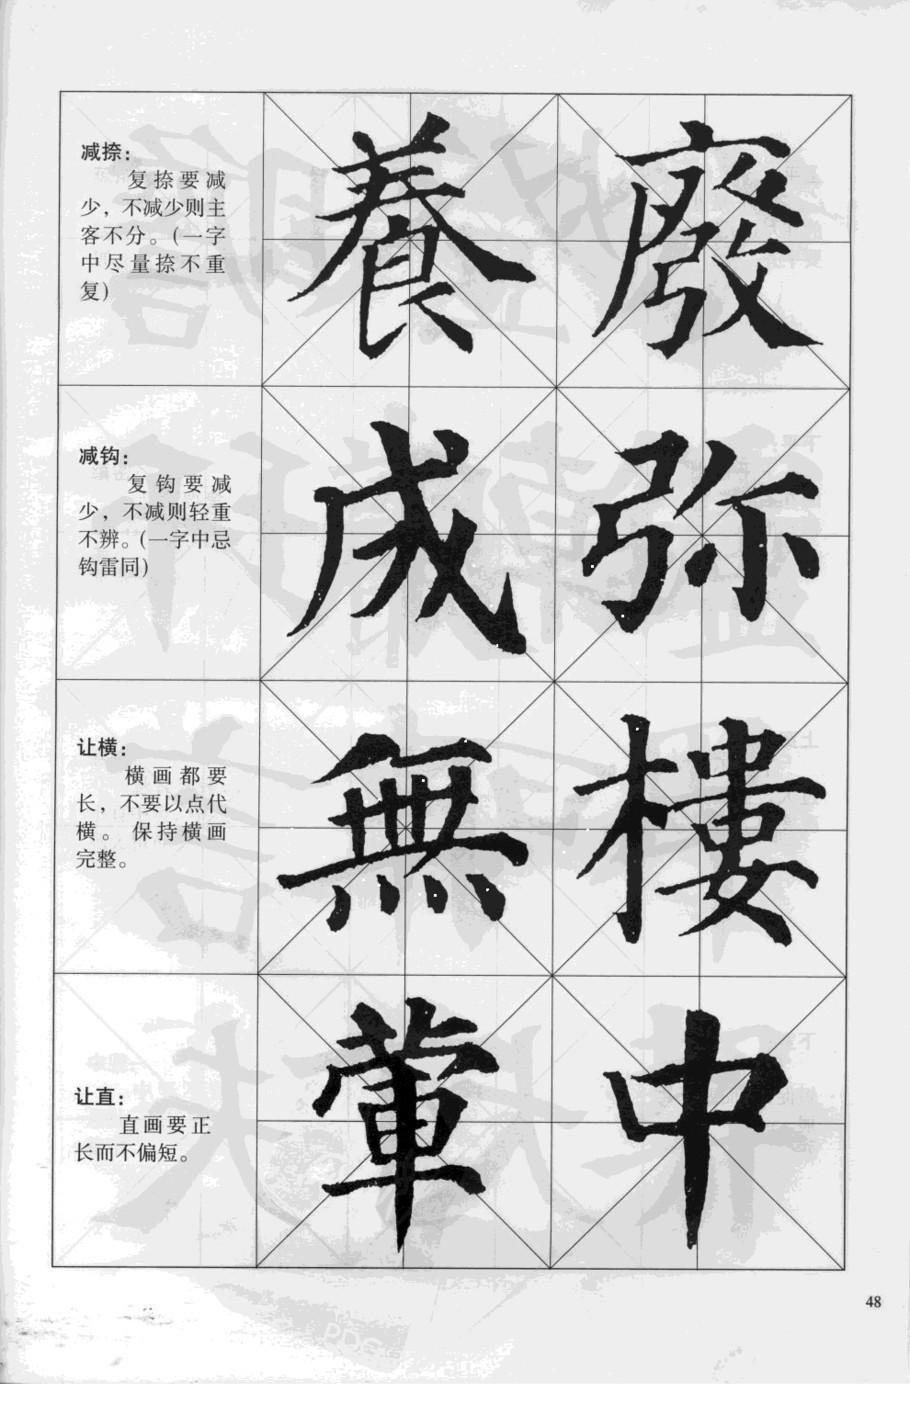 减捺：
复捺要减
少，不减少则主
客不分。(一字
中尽量捺不重
复)
養廢
减钩：
复钩要减
少，不减则轻重
不辨。(一字中忌
钩雷同)
成弥
让横：
横画都要
长，不要以点代
横。保持横画
完整。
無樓
让直：
直画要正
长而不偏短。
葷中
48